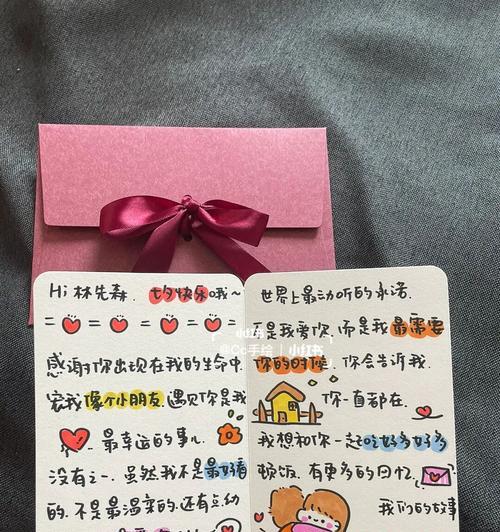 Hi 林先森. 七夕快乐哦~
= = = =
感谢你出现在我的生命中
宠我像个小朋友.遇见你是我
最幸运的事儿.
没有之一.虽然我不是最好看
的.不是最温柔的.还有点幼
世界上最动听的承诺.
不是我爱你.而是我最需要
你的时候.你会告诉我.
你一直都在.
我想和你一起吃好多好多
顿饭.有更多的回忆.
我们的故事
小红书
@Cc手绘 | 小红书